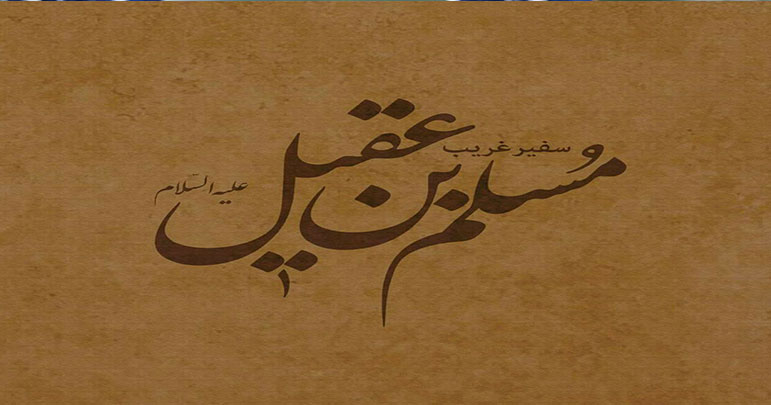 سفیر غریب
مُسلم بن عقیل
علیه السّلام